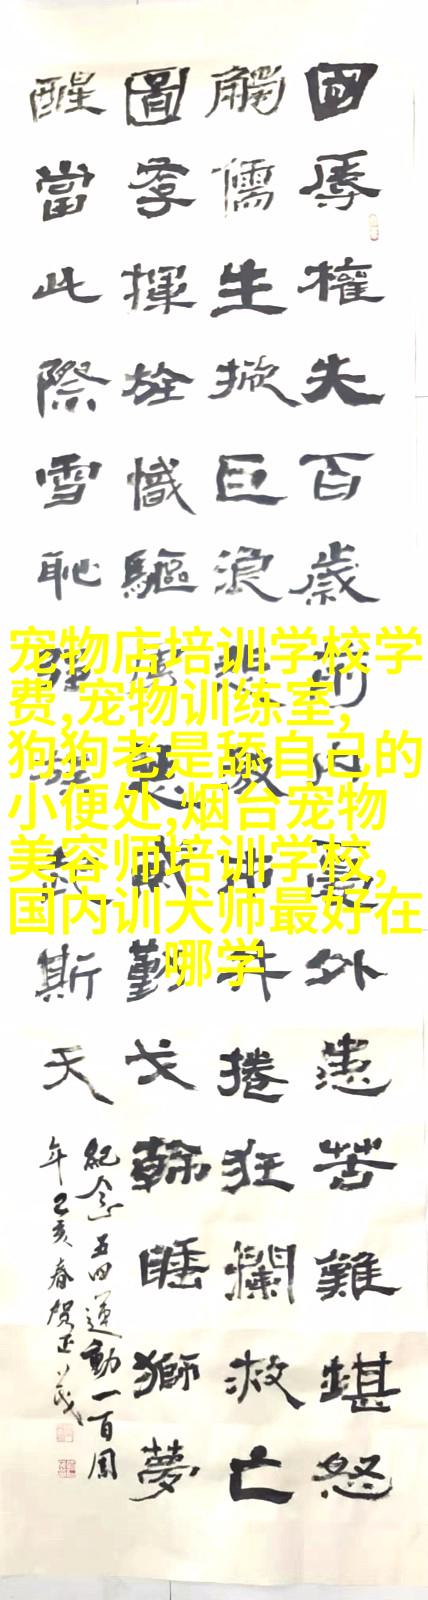 國辱權失百歲前內憂外患苦難堪怒
觸儒生掀巨浪捲狂瀾救亡
圖存揮旌幟驅惡戈睡獅夢
醒當此際雪恥強斯天
紀念五四運動一百周
年乙亥春賀正茂
宠物店培训学校学
费,宠物训练室,
狗狗老是舔自己的
小便处,烟台宠物
美容师培训学校,
国内训犬师最好在
哪学